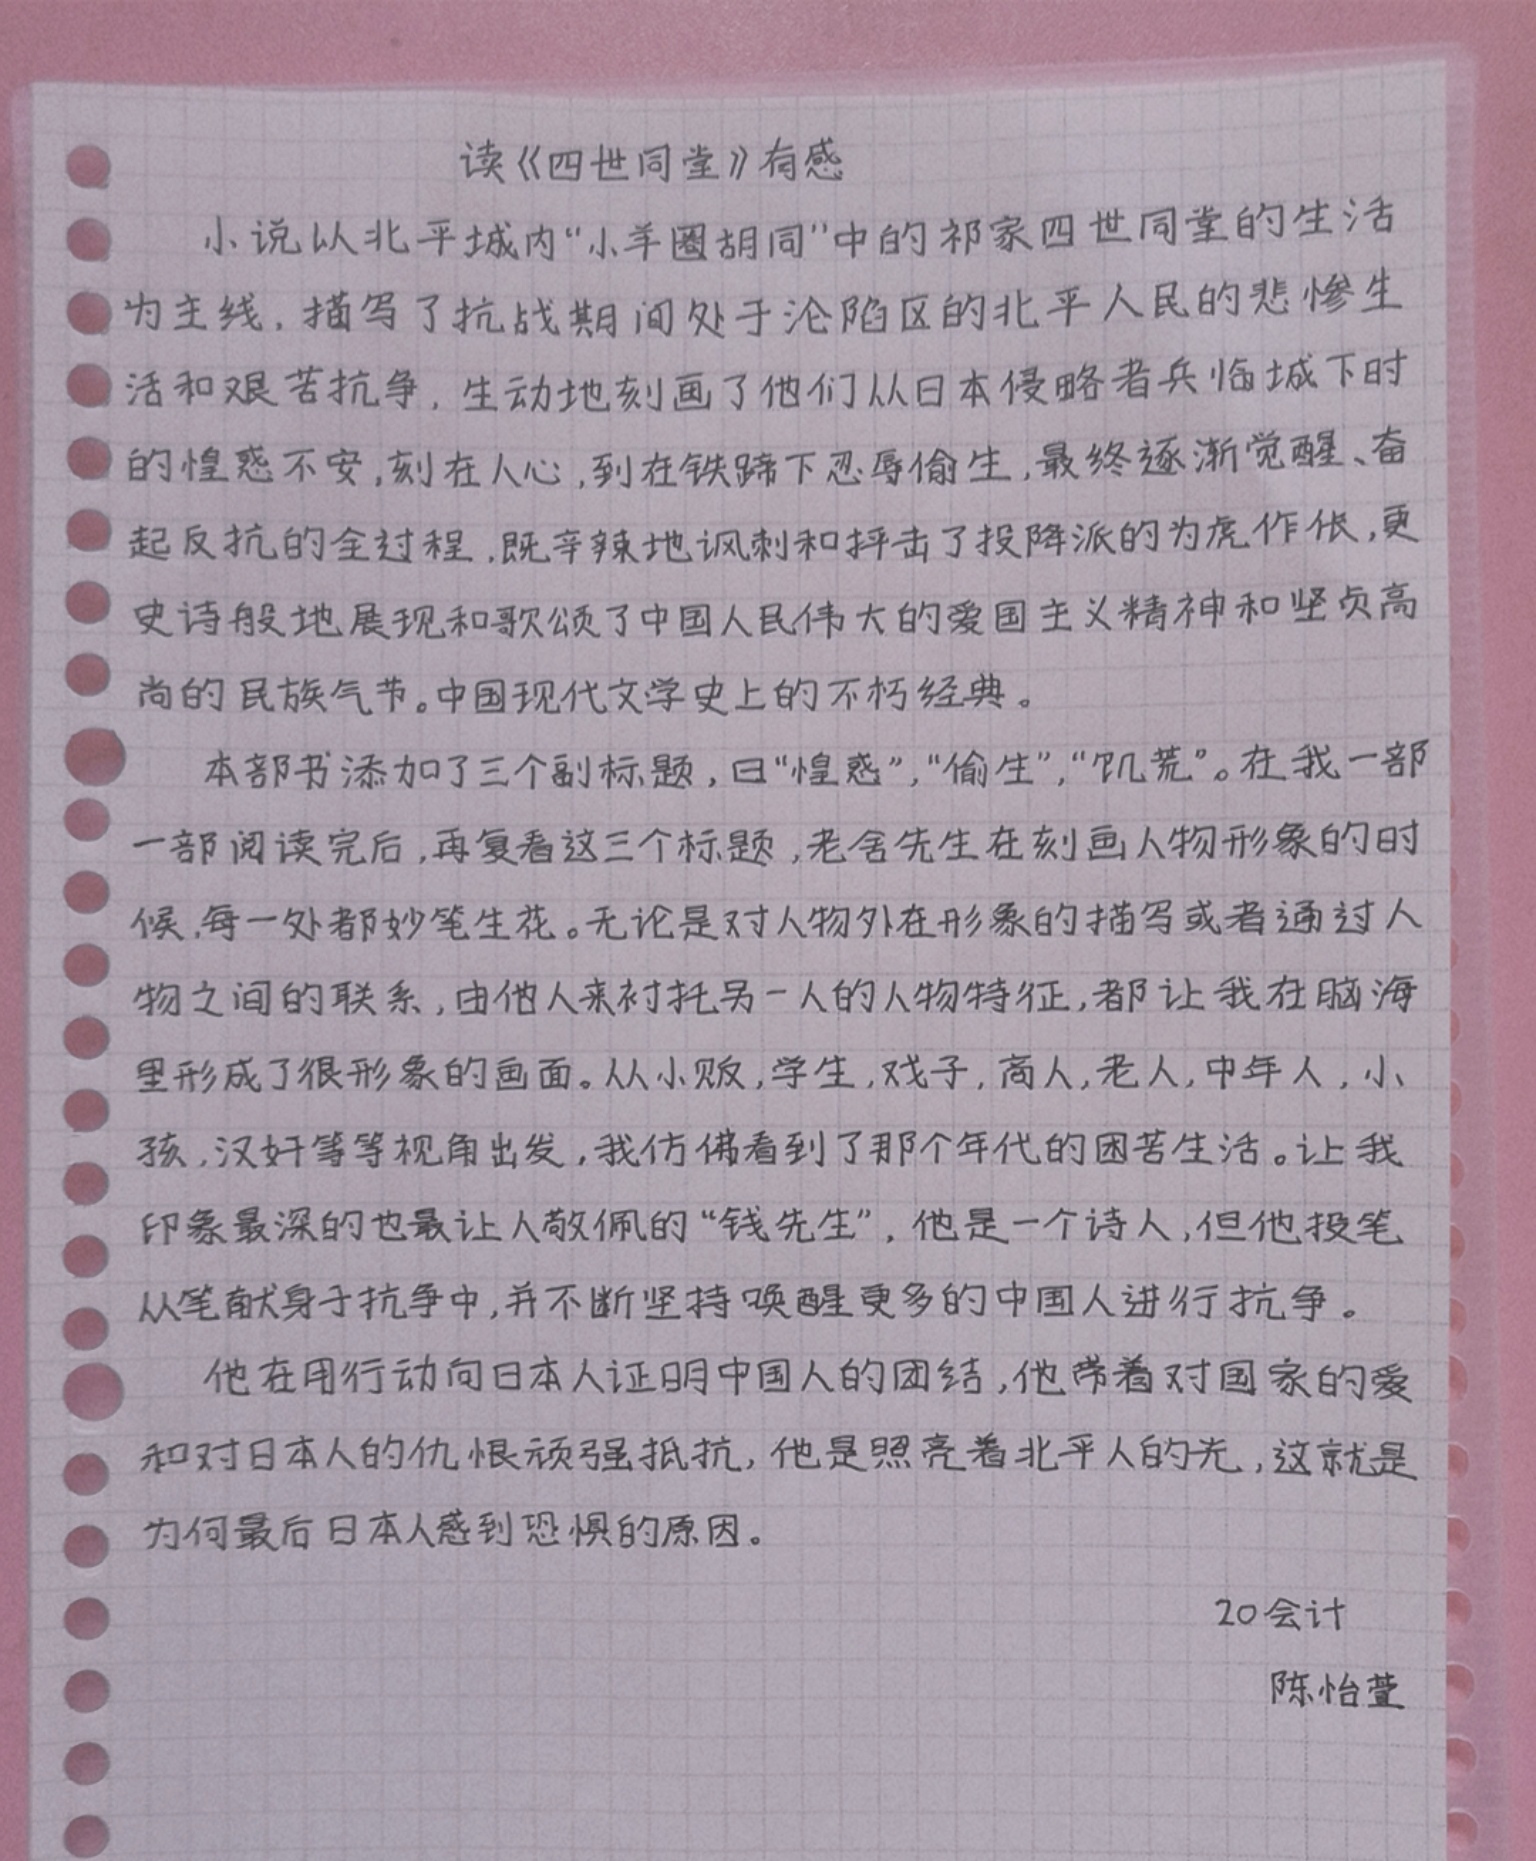 读《四世同堂》有感
小说以北平城内“小羊圈胡同”中的祁家四世同堂的生活
为主线，描写了抗战期间处于沦陷区的北平人民的悲惨生
活和艰苦抗争，生动地刻画了他们从日本侵略者兵临城下时
的惶惑不安，刻在人心，到在铁蹄下忍辱偷生，最终逐渐觉醒、奋
起反抗的全过程，既辛辣地讽刺和抨击了投降派的为虎作伥，更
史诗般地展现和歌颂了中国人民伟大的爱国主义精神和坚贞高
尚的民族气节。中国现代文学史上的不朽经典。
本部书添加了三个副标题，曰“惶惑”，“偷生”，“饥荒”。在我一部
一部阅读完后，再复看这三个标题，老舍先生在刻画人物形象的时
候，每一处都妙笔生花。无论是对人物外在形象的描写或者通过人
物之间的联系，由他人来衬托另一人的人物特征，都让我在脑海
里形成了很形象的画面。从小贩，学生，戏子，商人，老人，中年人，小
孩，汉奸等等视角出发，我仿佛看到了那个年代的困苦生活。让我
印象最深的也最让人敬佩的“钱先生”，他是一个诗人，但他投笔
从笔献身于抗争中，并不断坚持唤醒更多的中国人进行抗争。
他在用行动向日本人证明中国人的团结，他带着对国家的爱
和对日本人的仇恨顽强抵抗，他是照亮着北平人的光，这就是
为何最后日本人感到恐惧的原因。
20会计
陈怡萱